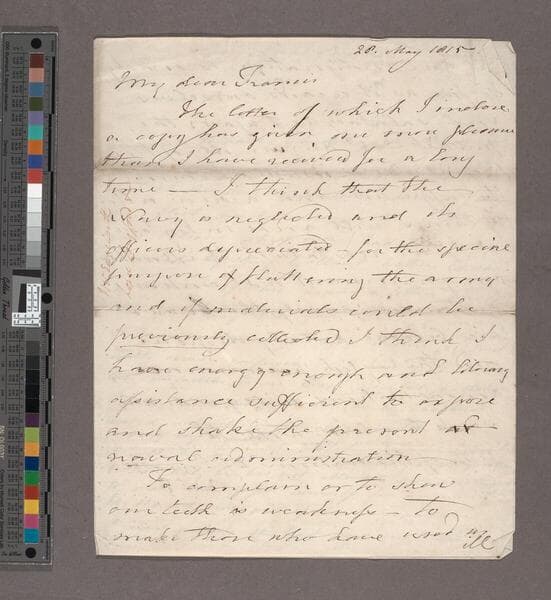 28. May 1815
My dear Francis
The letter of which I inclose
a copy has given me more pleasure
than I have received for a long
time — I think that the
Navy is neglected and its
officers depreciated – for the
purpose of flattering the army
and if materials could be
previously collected I think I
have energy enough and literary
assistance sufficient to expose
and shake the present
naval administration
To complain or to shew
our teeth is weakness – to
make those who have used us
ill